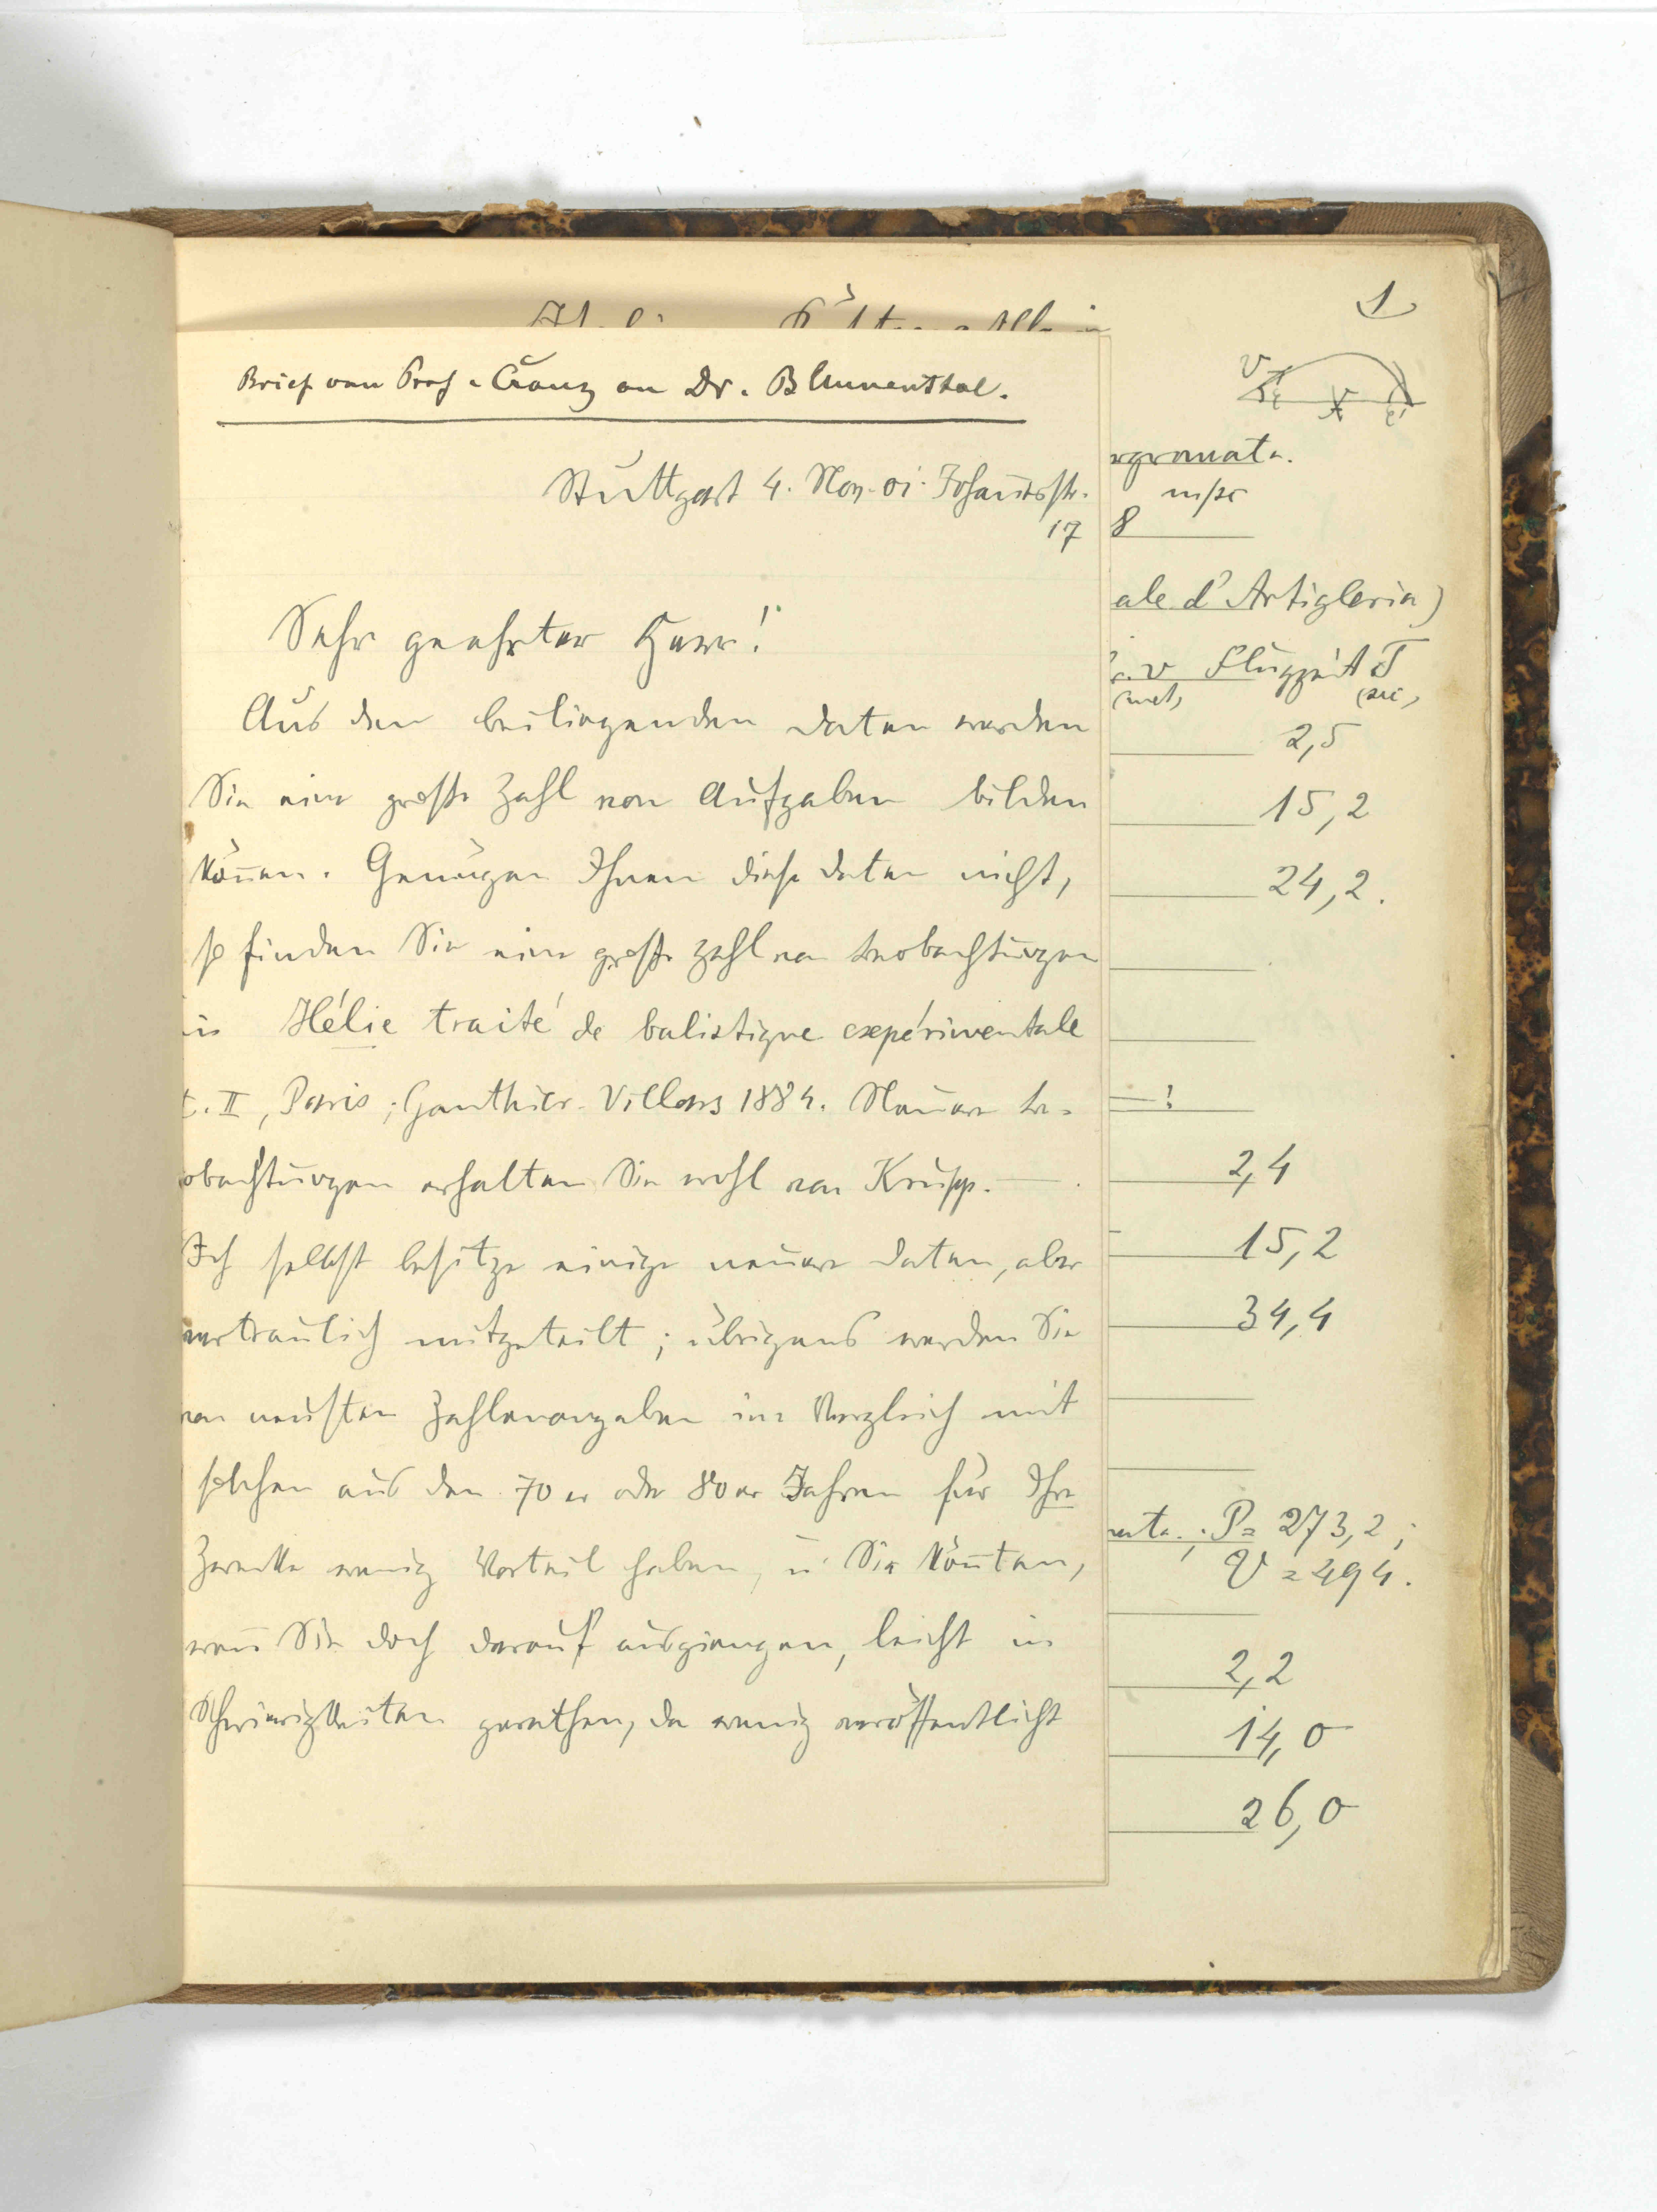 1
Brief von Prof. Cranz an Dr. Blumenthal.
Stuttgart 4. Nov. 01. Johannesstr.
17
Sehr geehrter Herr!
Aus den beiliegenden Daten werden
Sie eine große Zahl von Aufgaben bilden
können. Genügen Ihnen diese Daten nicht,
so finden Sie eine große Zahl von Beobachtungen
in Hélie traité de balistique expérimentale
t. II, Paris; Gauthier-Villars 1884. Neuere Be=
obachtungen erhalten Sie wohl von Krupp. —
Ich selbst besitze einige neuere Daten, aber
vertraulich mitgeteilt; übrigens werden Sie
von neusten Zahlenangaben im Vergleich mit
solchen aus den 70er oder 80er Jahren für Ihre
Zwecke wenig Vorteil haben, u. Sie könnten,
wenn Sie doch darauf ausgiengen, leicht in
Schwierigkeiten gerathen, da wenig veröffentlicht
V
X
rgranate.
m/sc
8
ale d'Artigleria)
v Flugzeit T
(met) (sec)
2,5
15,2
24,2.
—!
2,4
15,2
34,4
P= 273,2;
V=494.
2,2
14,0
26,0